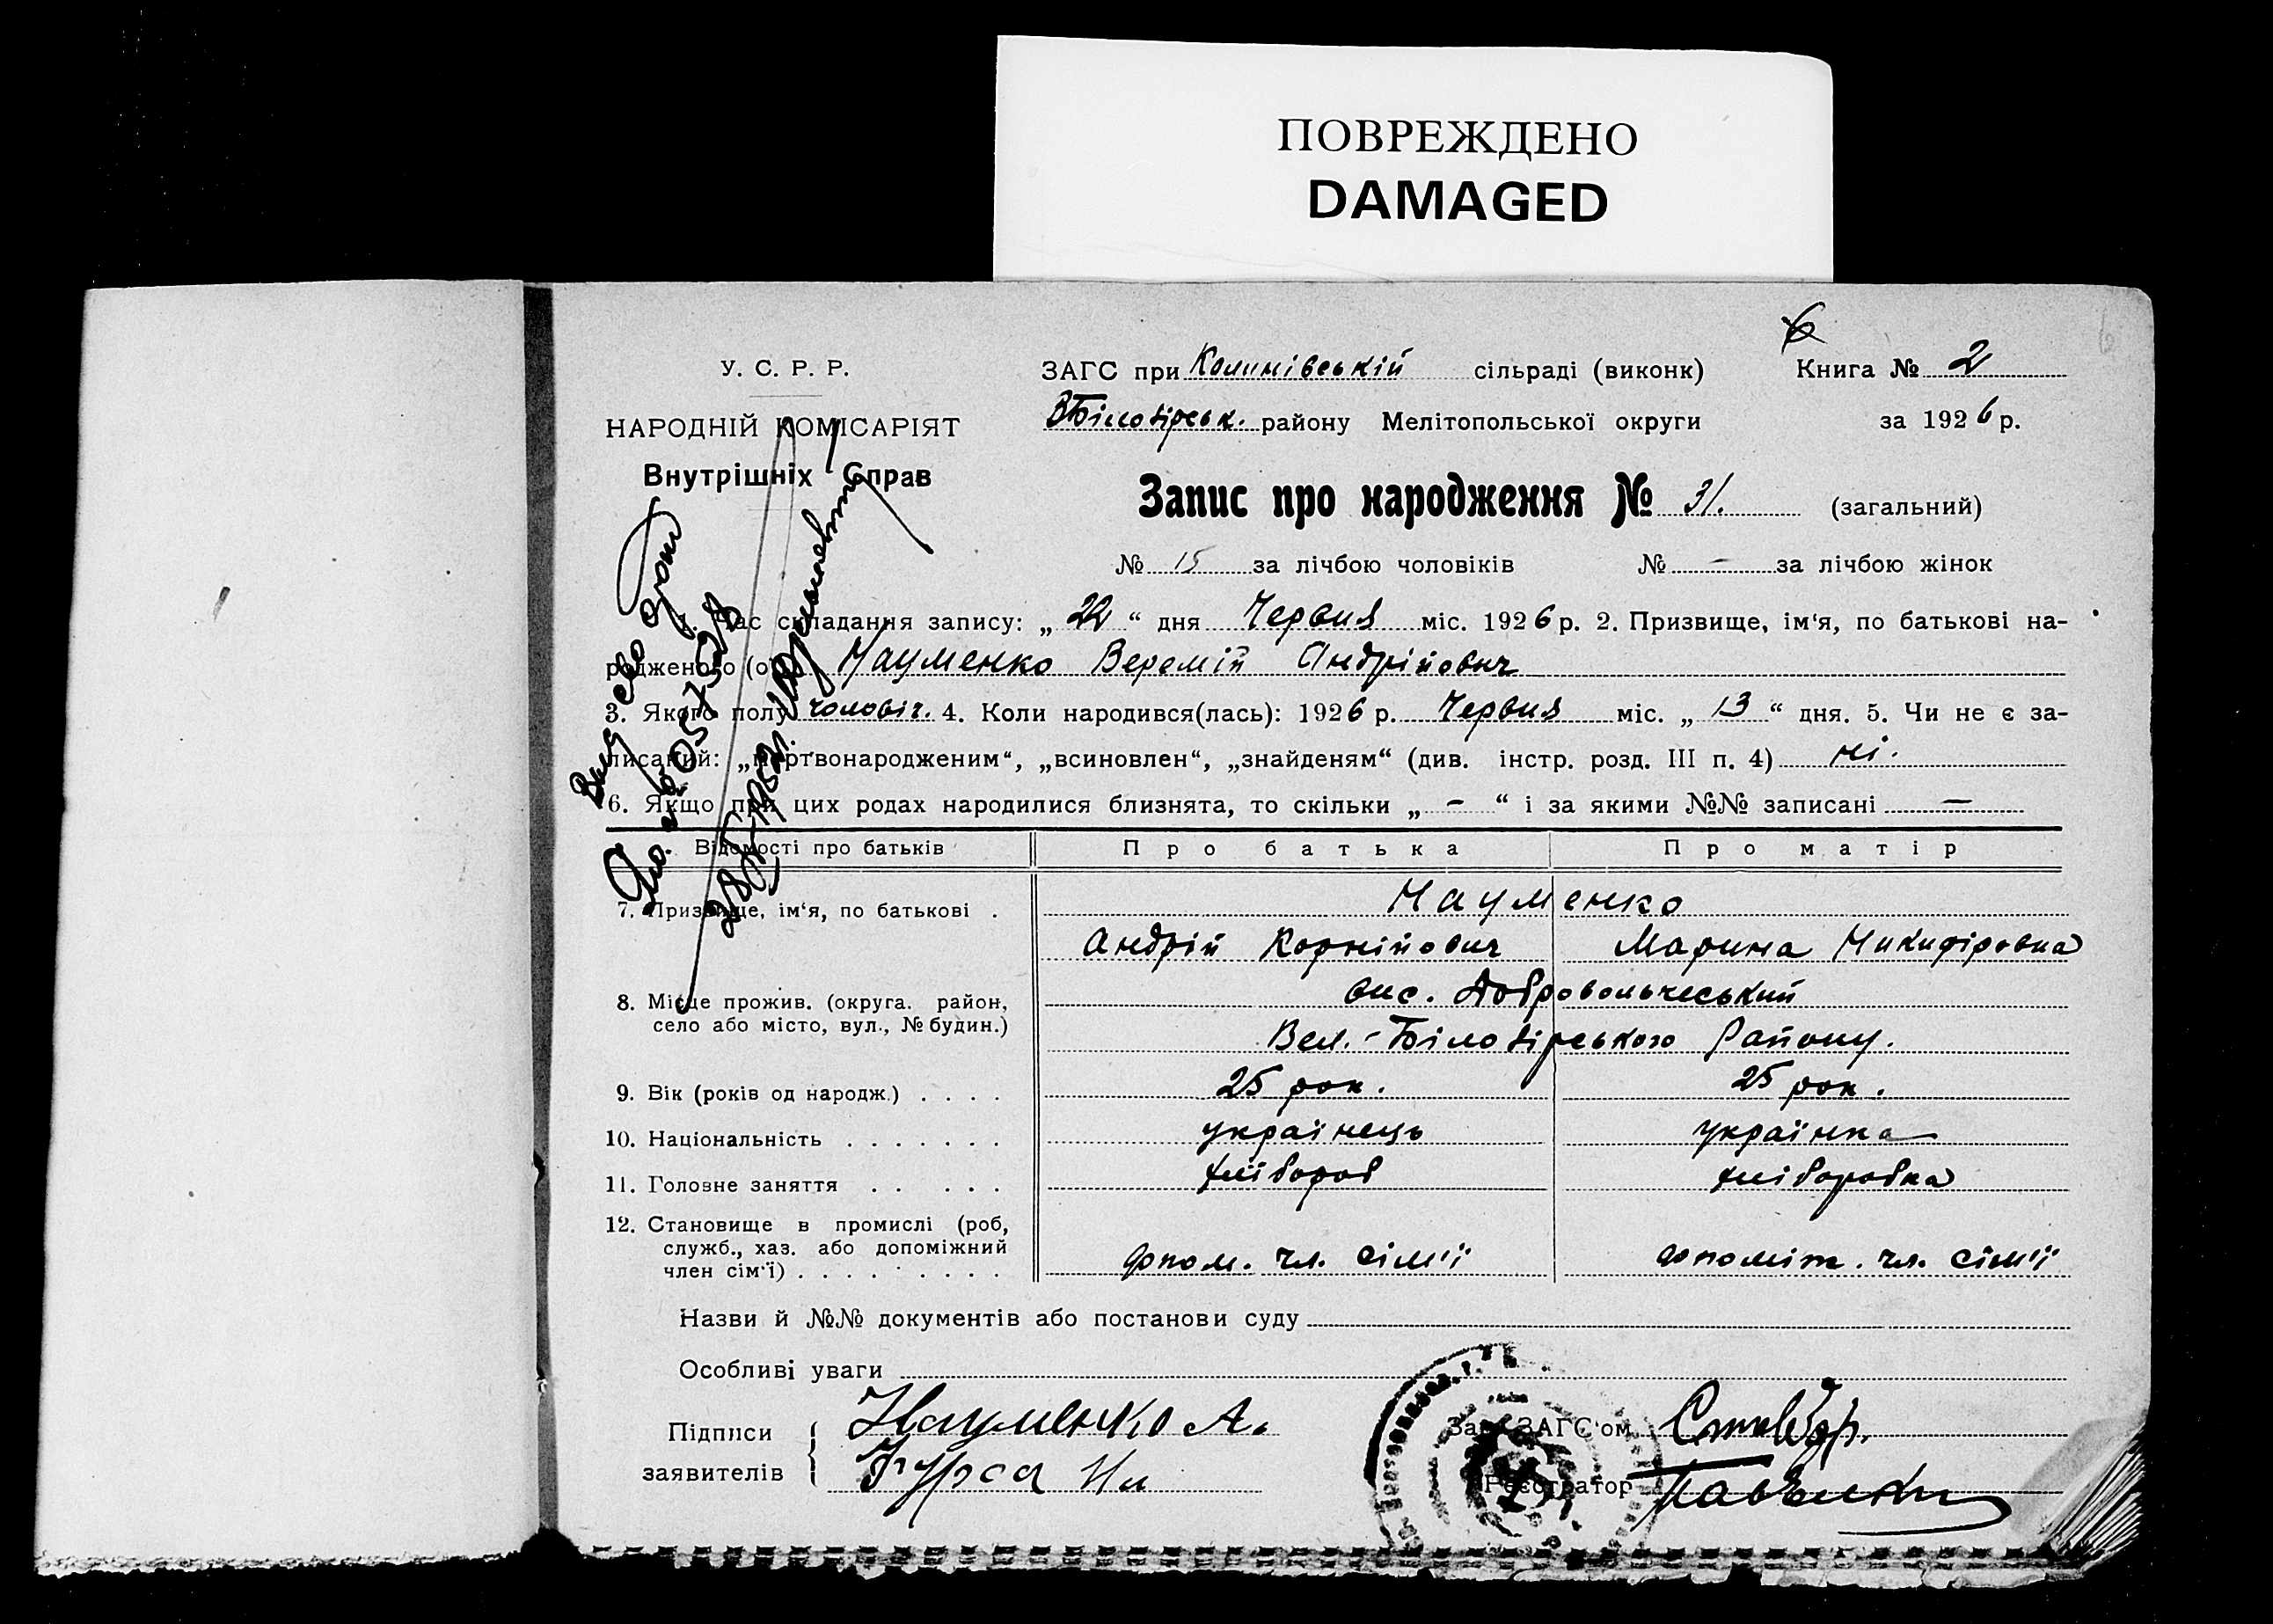 ПОВРЕЖДЕНО
DAMAGED
6
У. С. Р. Р.
НАРОДНІЙ КОМІСАРІЯТ
Внутрішніх Справ
ЗАГС при Калинівській сільраді (виконк) Книга № 2
ВБілозірськ. району Мелітопольської округи за 1926 р.
Запис про народження № 31. (загальний)
№ 15 за лічбою чоловіків № - за лічбою жінок
1. Час складання запису: „ 22 “ дня Червня міс. 1926 р. 2. Призвище, ім‘я, по батькові на-
родженого (ої) Науменко Веремій Андрійович
3. Якого полу чоловіч. 4. Коли народився(лась): 1926 р. Червня міс. „ 13 “ дня. 5. Чи не є за-
писаний: „мертвонародженим“, „всиновлен“, „знайденям“ (див. інстр. розд. III п. 4) ні.
6. Якщо при цих родах народилися близнята, то скільки „ - “ і за якими №№ записані —
Відомості про батьків Про батька Про матір
7. Призвище, ім‘я, по батькові . Науменко
Андрій Корнійович Марина Никифіровна
8. Місце прожив. (округа. район, село або місто, вул., № будин.) вис. Добровольчеський
Вел.-Білозірського Району.
9. Вік (років од народж.) . . . . 25 рок. 25 рок.
10. Національність . . . . . . . українець українка
11. Головне заняття . . . . . хлібороб хліборобка
12. Становище в промислі (роб, служб., хаз. або допоміжний член сім‘ї) . . . . . . . . . чл. сім'ї чл. сім'ї
Назви й №№ документів або постанови суду
Особливі уваги
Підписи заявителів { Науменко А.
Зав. ЗАГС‘ом
Реєстратор